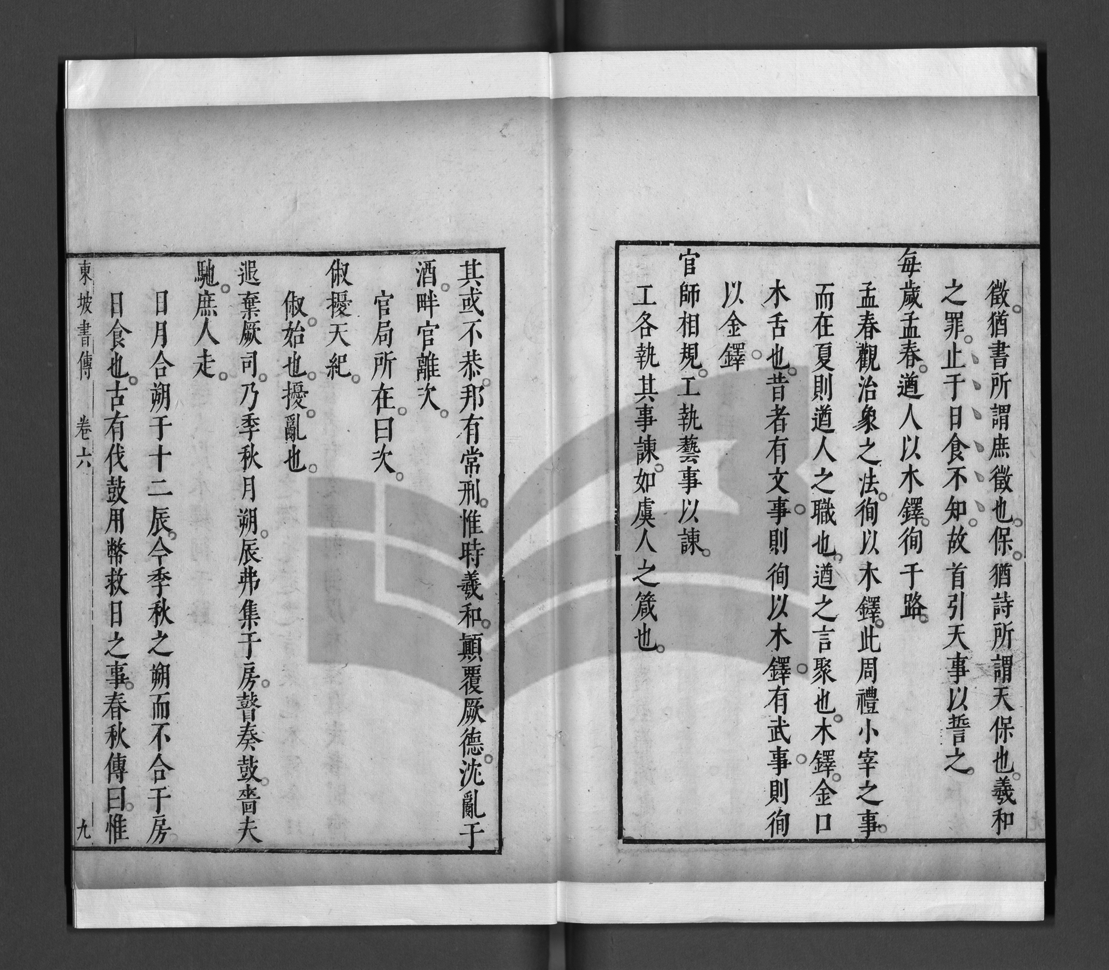 徵猶書所謂庶徵也保猶詩所謂天保也羲和
之罪止于日食不知故首引天事以誓之
每歲孟春遒人以木鐸徇于路
孟春觀治象之法徇以木鐸此周禮小宰之事
而在夏則遒人之職也遒之言聚也木鐸金口
木舌也昔者有文事則徇以木鐸有武事則徇
以金鐸
官師相規工執藝事以諫
工各執其事諫如虞人之箴也
其或不恭邦有常刑惟時羲和顛覆厥德沈亂于
酒畔官離次
官局所在曰次
俶擾天紀
俶始也擾亂也
遐棄厥司乃季秋月朔辰弗集于房瞽奏鼓嗇夫
馳庶人走
日月合朔于十二辰今季秋之朔而不合于房
日食也古有伐鼓用幣救日之事春秋傳曰惟
東坡書傳 卷六 九